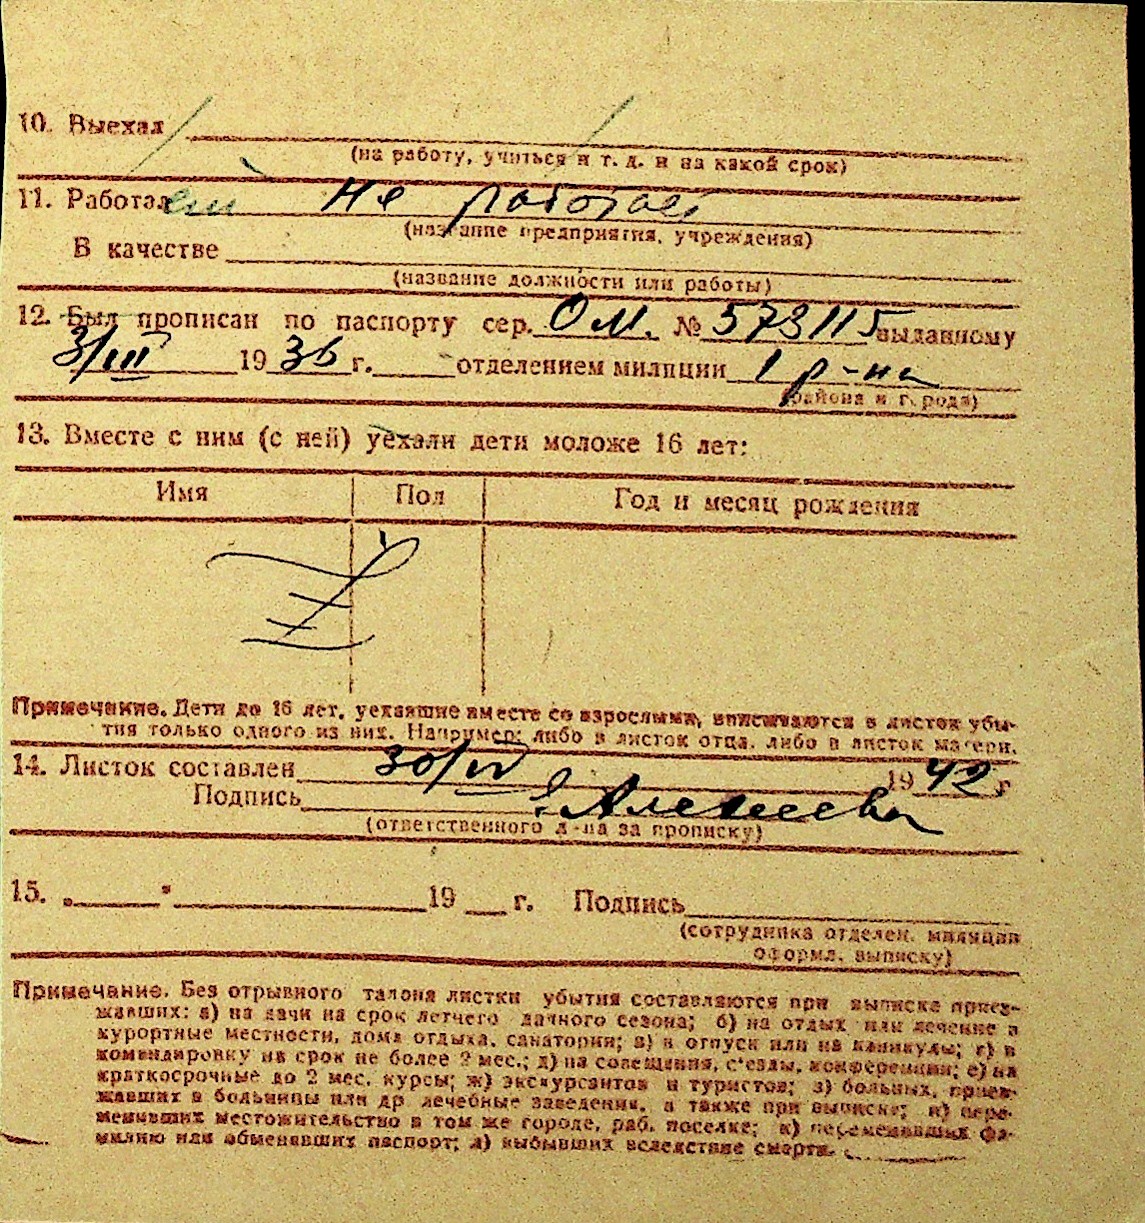 10. Выехал
(на работу, учиться и т. д. и на какой срок)
11. Работал Не работает
(название предприятия, учреждения)
В качестве
(название должности или работы)
12. Был прописан по паспорту сер. ОМ. № 573115 выданному
3/III 1936 г. отделением милиции 1 р-на
(района и города)
13. Вместе с ним (с ней) уехали дети моложе 16 лет:
Имя Пол Год и месяц рождения
Z
Примечание. Дети до 16 лет, уехавшие вместе со взрослыми, вписываются в листок убы-
тия только одного из них. Например: либо в листок отца, либо в листок матери.
14. Листок составлен 30/IV 1942 г.
Подпись Алексеева
(ответственного д-ла за прописку)
15. „ “ 19 г. Подпись
(сотрудника отделен. милиции
оформл. выписку)
Примечание. Без отрывного талона листки убытия составляются при выписке приез-
жавших: а) на дачи на срок летнего дачного сезона; б) на отдых или лечение в
курортные местности, дома отдыха, санатории; в) в отпуск или на каникулы; г) в
командировку на срок не более 2 мес.; д) на совещания, с'езды, конференции; е) на
краткосрочные до 2 мес. курсы; ж) экскурсантов и туристов; з) больных, приез-
жавших в больницы или др лечебные заведения, а также при выписке; и) пере-
менивших местожительство в том же городе, раб. поселке; к) переменивших фа-
милию или обменявших паспорт; л) выбывших вследствие смерти.